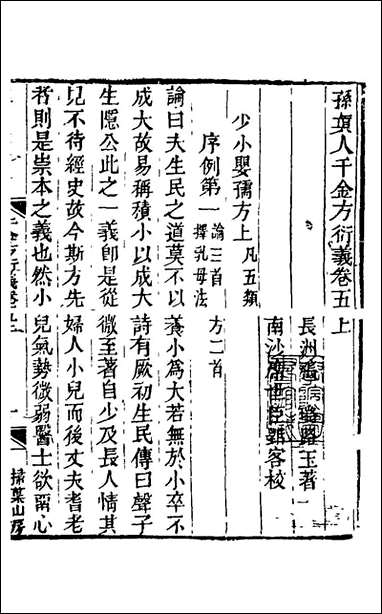 孫真人千金方衍義卷五上
長洲張璐路玉著
南沙席世臣郢客校
少小嬰孺方上 凡五類
序例第一 論三首 方二首 擇乳母法
論曰夫生民之道莫不以養小為大若無於小卒不
成大故易稱積小以成大詩有厥初生民傳曰聲子
生隱公此之一義即是從微至著自少及長人情共
見不待經史故今斯方先婦人小兒而後丈夫耆老
者則是崇本之義也然小兒氣勢微弱醫士欲留心
掃葉山房